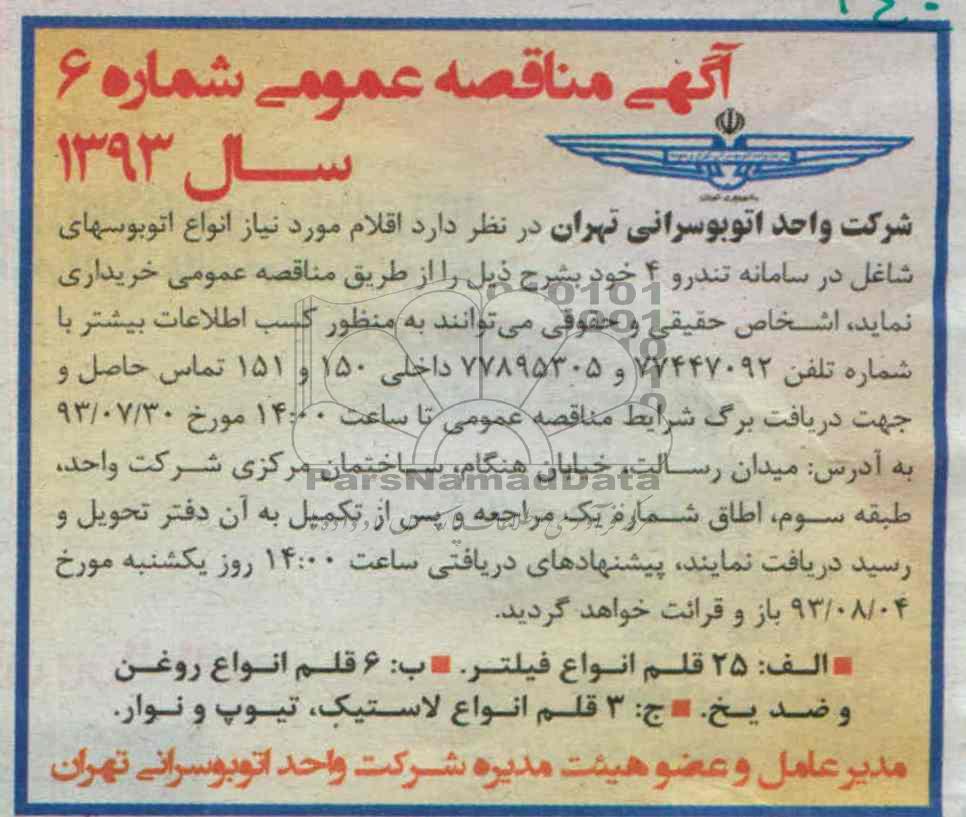 آگهی مناقصه عمومی شماره ۶
سال ۱۳۹۳
شرکت واحد اتوبوسرانی تهران در نظر دارد اقلام مورد نیاز انواع اتوبوسهای
شاغل در سامانه تندرو ۴ خود بشرح ذیل را از طریق مناقصه عمومی خریداری
نماید، اشخاص حقیقی و حقوقی می‌توانند به منظور کسب اطلاعات بیشتر با
شماره تلفن ۷۷۴۴۷۰۹۲ و ۷۷۸۹۵۳۰۵ داخلی ۱۵۰ و ۱۵۱ تماس حاصل و
جهت دریافت برگ شرایط مناقصه عمومی تا ساعت ۱۴:۰۰ مورخ ۹۳/۰۷/۳۰
به آدرس: میدان رسالت، خیابان هنگام، ساختمان مرکزی شرکت واحد،
ParsNamadData
طبقه سوم، اطاق شماره یک مراجعه و پس از تکمیل به آن دفتر تحویل و
رسید دریافت نمایند، پیشنهادهای دریافتی ساعت ۱۴:۰۰ روز یکشنبه مورخ
۹۳/۰۸/۰۴ باز و قرائت خواهد گردید.
الف: ۲۵ قلم انواع فیلتر. ب: ۶ قلم انواع روغن
و ضد یخ. ج: ۳ قلم انواع لاستیک، تیوپ و نوار.
مدیر عامل و عضو هیئت مدیره شرکت واحد اتوبوسرانی تهران